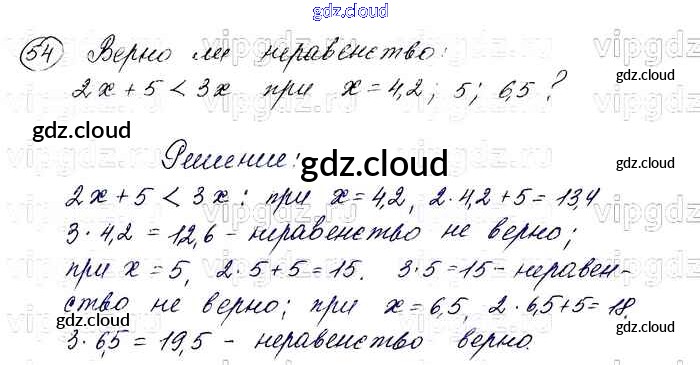 gdz.cloud
54 Верно ли неравенство:
2x + 5 < 3x при x = 4,2; 5; 6,5 ?
gdz.cloud
gdz.cloud
Решение:
gdz.cloud
2x + 5 < 3x: при x = 4,2, 2·4,2 + 5 = 13,4
3·4,2 = 12,6 - неравенство не верно;
при x = 5, 2·5 + 5 = 15. 3·5 = 15 - неравен-
ство не верно; при x = 6,5, 2·6,5 + 5 = 18,
3·6,5 = 19,5 - неравенство верно.
gdz.cloud
gdz.cloud
gdz.cloud